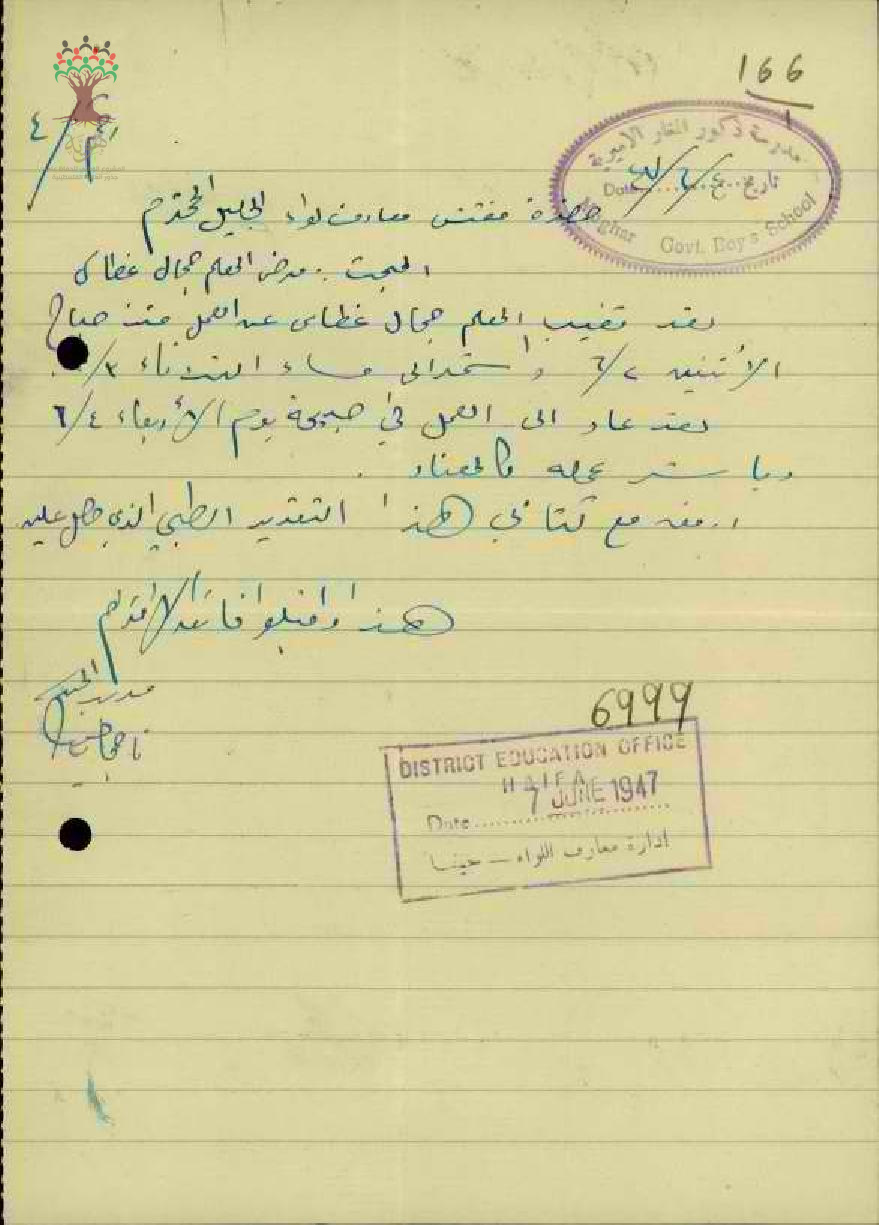 166
1
مدرسة ذكور المغار الاميرية
تاريخ ٤/٦/٤٧ Date
Maghar Govt. Boy's School
م/٤
حضرة مفتش معارف لواء الجليل المحترم
المبحث : مرض المعلم جمال غطاس
لقد تغيب المعلم جمال غطاس عن العمل منذ صباح
الأثنين ٦/٢ واستمر الى مساء الثلاثاء ٦/٣.
لقد عاد الى العمل في صبيحة يوم الأربعاء ٦/٤
وباشر عمله كالمعتاد .
ارفق مع كتابي هذا التقرير الطبي الذي حصل عليه
هذا واقبلوا فائق الاحترام
مدير المدرسة
6999
DISTRICT EDUCATION OFFICE
HAIFA
7 JUNE 1947
Date
ادارة معارف اللواء — حيفا